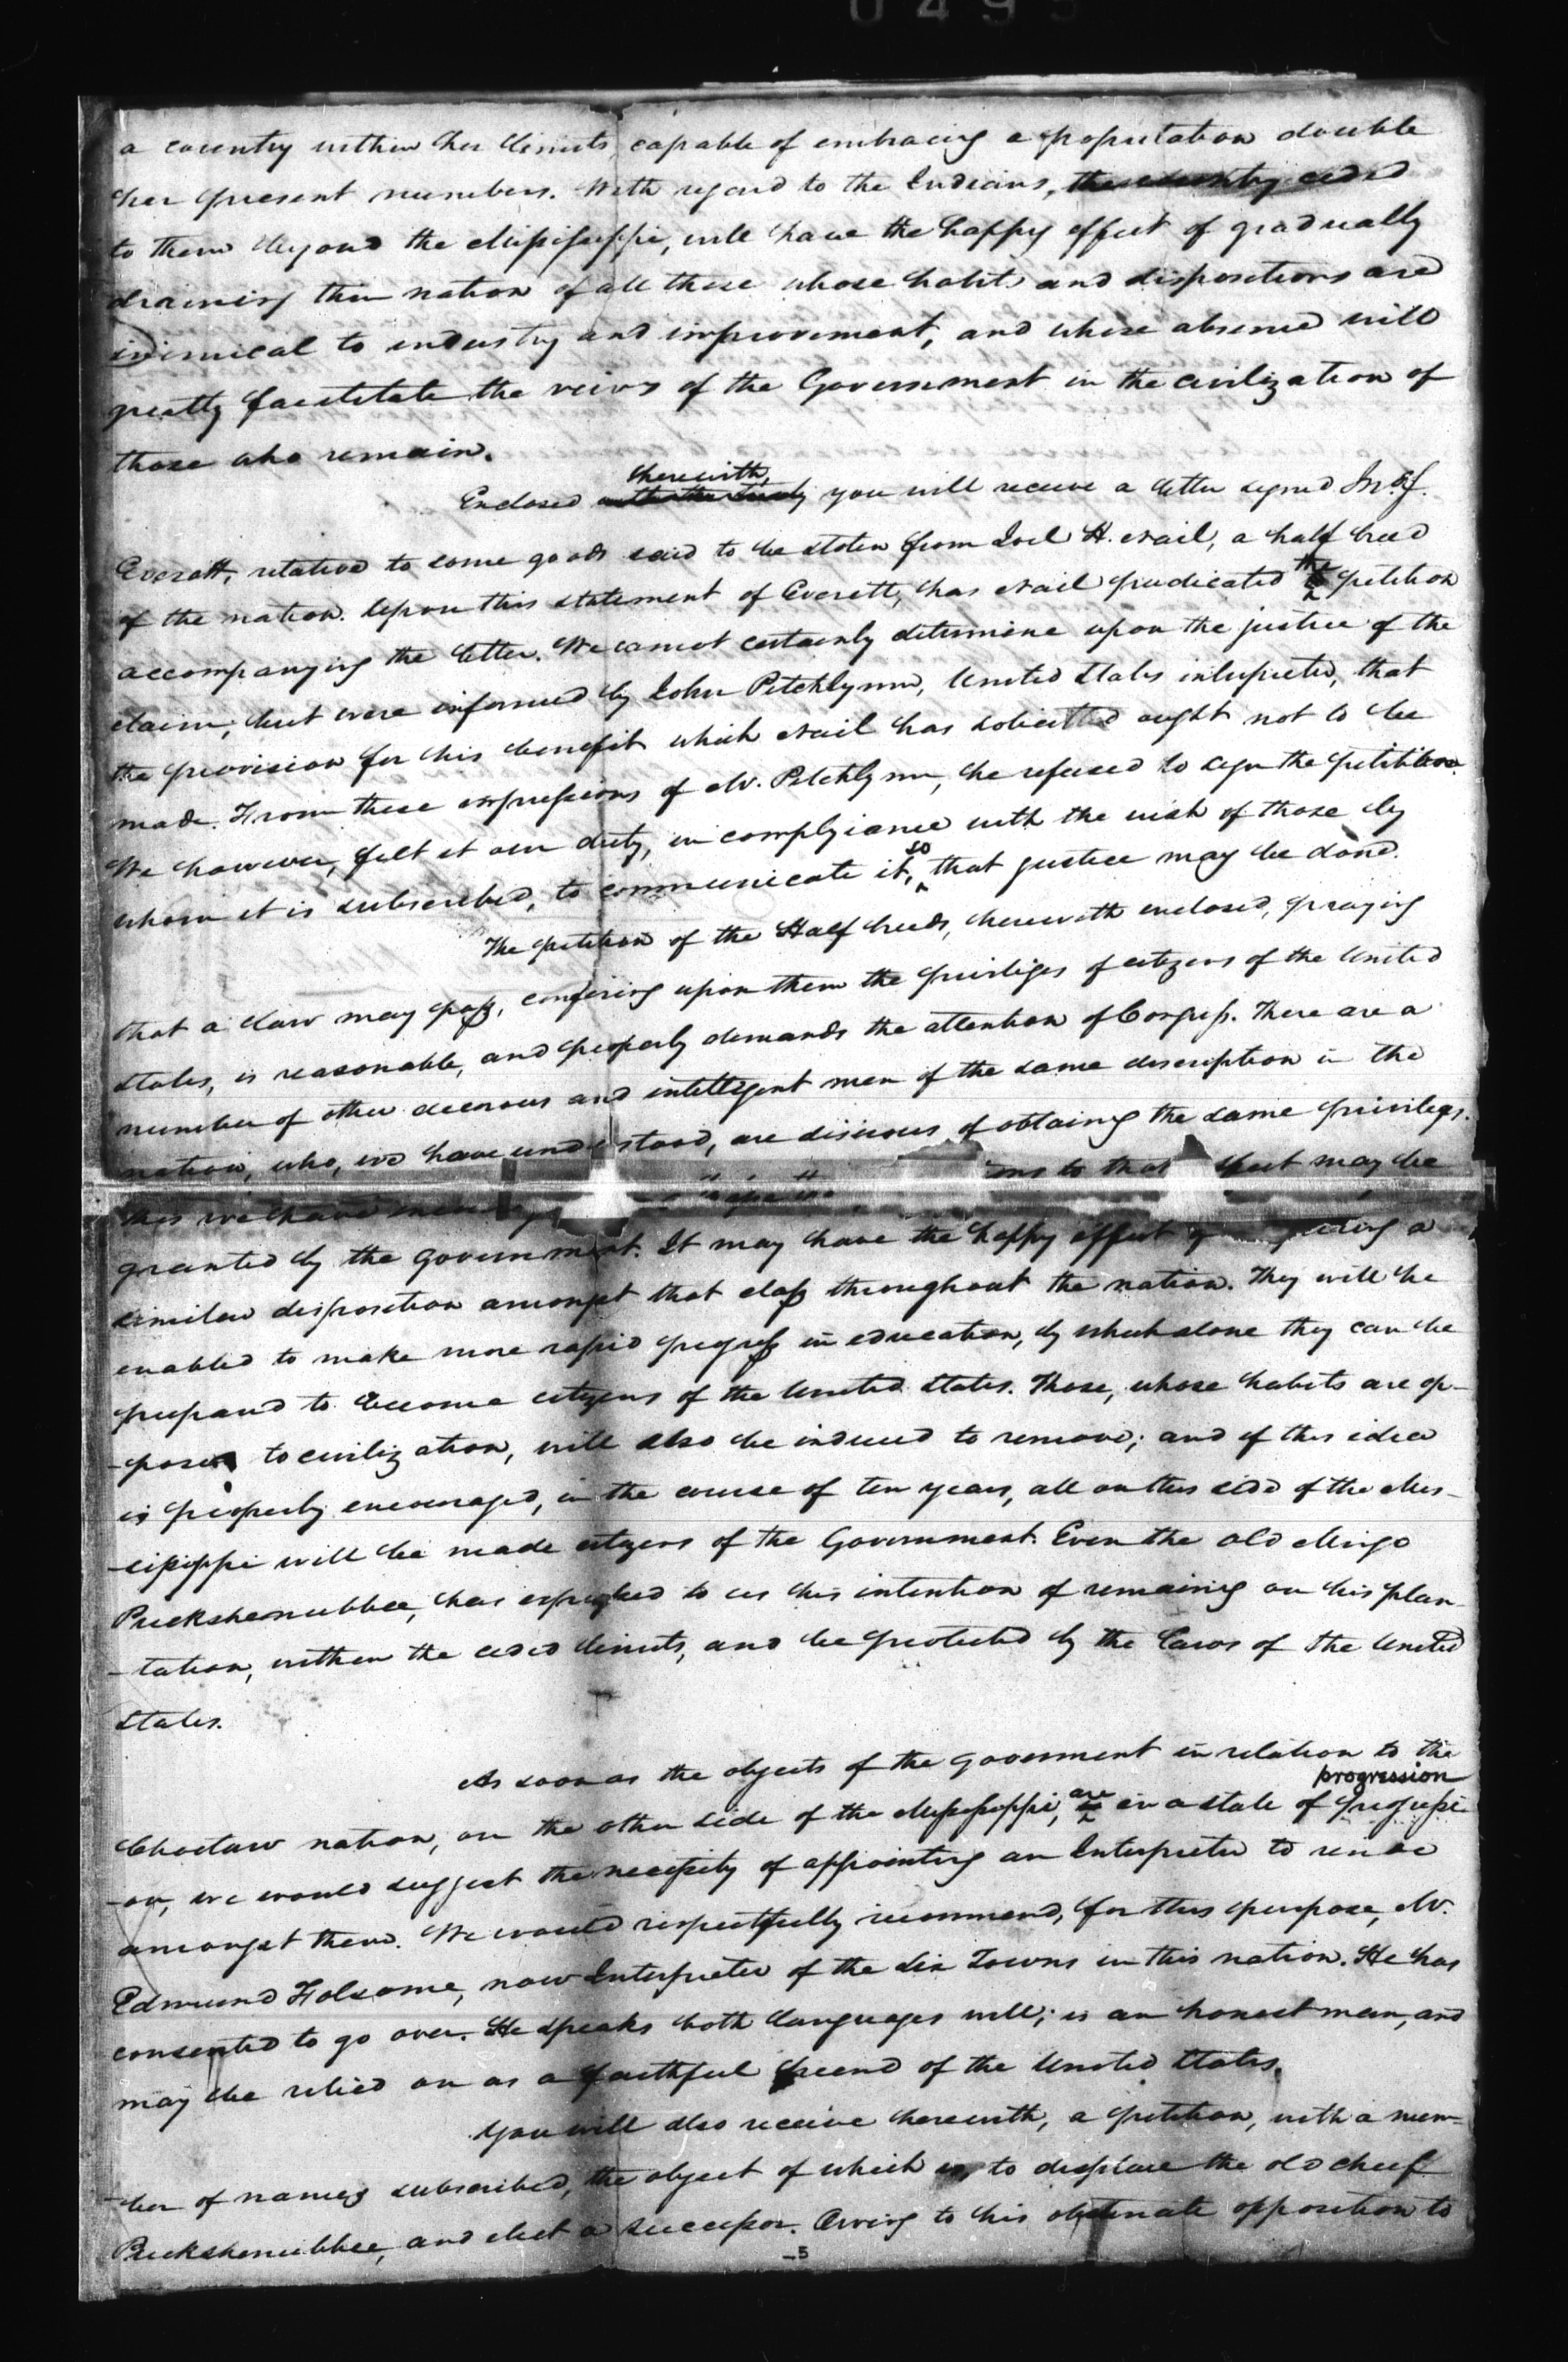 0495
a country within her limits, capable of embracing a population double
her present numbers. With regard to the Indians, the country ceded
to them beyond the Missisippi, will have the happy effect of gradually
draining this nation of all those whose habits and dispositions are
inimical to industry and improvement, and whose absence will
greatly facilitate the views of the Government in the civilization of
those who remain.
herewith,
Enclosed you will receive a letter signed Jno. J.
Everett, relative to some goods said to be stolen from Joel H. Nail, a half breed
of the nation. Upon this statement of Everett, has Nail predicated the petition
accompanying the letter. We cannot certainly determine upon the justice of the
claim; but were informed by John Pitchlynn, United States interpreter, that
the provision for his benefit which Nail has solicitted ought not to be
made. From these expressions of Mr. Pitchlynn, he refused to sign the petition.
We however, felt it our duty, in complyiance with the wish of those by
whom it is subscribed, to communicate it, so that justice may be done.
The petition of the Half breeds, herewith enclosed, praying
that a law may pass, confering upon them the priviliges of citizens of the United
States, is reasonable, and properly demands the attention of Congress. There are a
number of other decorous and intelligent men of the same description in the
nation, who, we have understood, are desirous of obtaining the same privileges.
this we have to that may be
granted by the government. It may have the happy effect of a
similar disposition amongst that class throughout the nation. They will be
enabled to make more rapid progress in education, by which alone they can be
prepared to become citizens of the United States. Those, whose habits are op-
-posed to civilization, will also be induced to remove; and if this idea
is properly encouraged, in the course of ten years, all on this side of the Mis-
-sisippi will be made citizens of the Government. Even the old Mingo
Puckshenubbee, has expressed to us his intention of remaining on his plan-
-tation, within the ceded limits, and be protected by the laws of the United
States.
As soon as the objects of the government in relation to the
progression
Choctaw nation, on the other side of the Mississippi, are in a state of progressi-
-on, we would suggest the necessity of appointing an Interpreter to reside
amongst them. We would respectfully recommend, for this purpose, Mr.
Edmund Folsome, now Interpreter of the Six Towns in this nation. He has
consented to go over. He speaks both languages well; is an honest man, and
may be relied on as a faithful friend of the United States.
You will also receive herewith, a petition, with a num-
-ber of names subscribed, the object of which is, to displace the old chief
Puckshenubbee, and elect a successor. Owing to his obstinate opposition to
-5